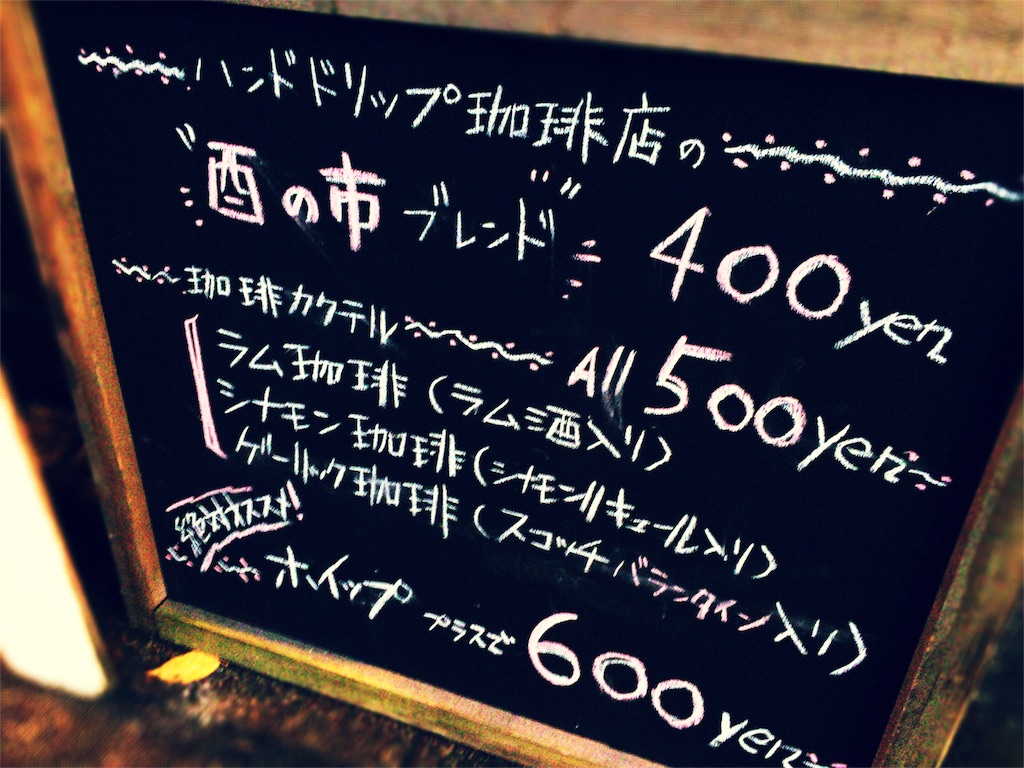 ハンドドリップ珈琲店の
"酉の市ブレンド" 400yen
珈琲カクテル All 500yen
ラム珈琲(ラム酒入り)
シナモン珈琲(シナモンリキュール入り)
ゲーリック珈琲(スコッチバランタイン入り)
絶対オススメ!
ホイッププラスで 600yen